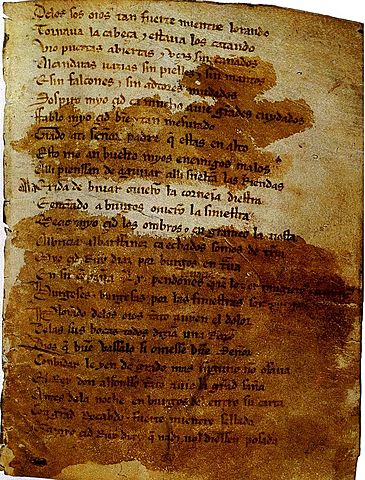 Delos sos oios tan fuerte mientre lorando
Tornaua la cabeça ⁊ estaua los catando
Vio puertas abiertas ⁊ vços sin cañados
Alcandaras uazias sin pielles ⁊ sin mantos
E sin falcones ⁊ sin adtores mudados
Sospiro myo çid ca mucho auie grãdes cuydados
Ffablo myo çid bien ⁊ tan mesurado
Grado ati señor padre q̃ estas en alto
Esto me an buelto myos enemigos malos
Alli pienssan de aguiiar alli sueltan las Riendas
Ala exida de biuar ouierõ la corneia diestra
E entrãdo a burgos ouierõ la siniestra
Meçio myo çid los ombros ⁊ en grameo la tiesta
Albricia albarffanez ca echados somos de tr̃ra
Myo çid Ruy diaz por burgos en traua
En su conpaña .Lx. pendones
Burgeses ⁊ burgesas por las finiestras son
Plorando delos oios tãto auyen el dolor
Delas sus bocas todos dizian una Razõ
Dios q̃ buẽ vassalo si ouiesse buẽ Señor
Conbidar le yen de grado mas ninguno no osaua
El Rey don alfonsso tãto auie la grãd saña
Antes dela noche en burgos del entro su carta
Cõ grãd Recabdo ⁊ fuerte mientre sellada
Que a myo çid Ruy diaz q̃ nadi nol diessen posada